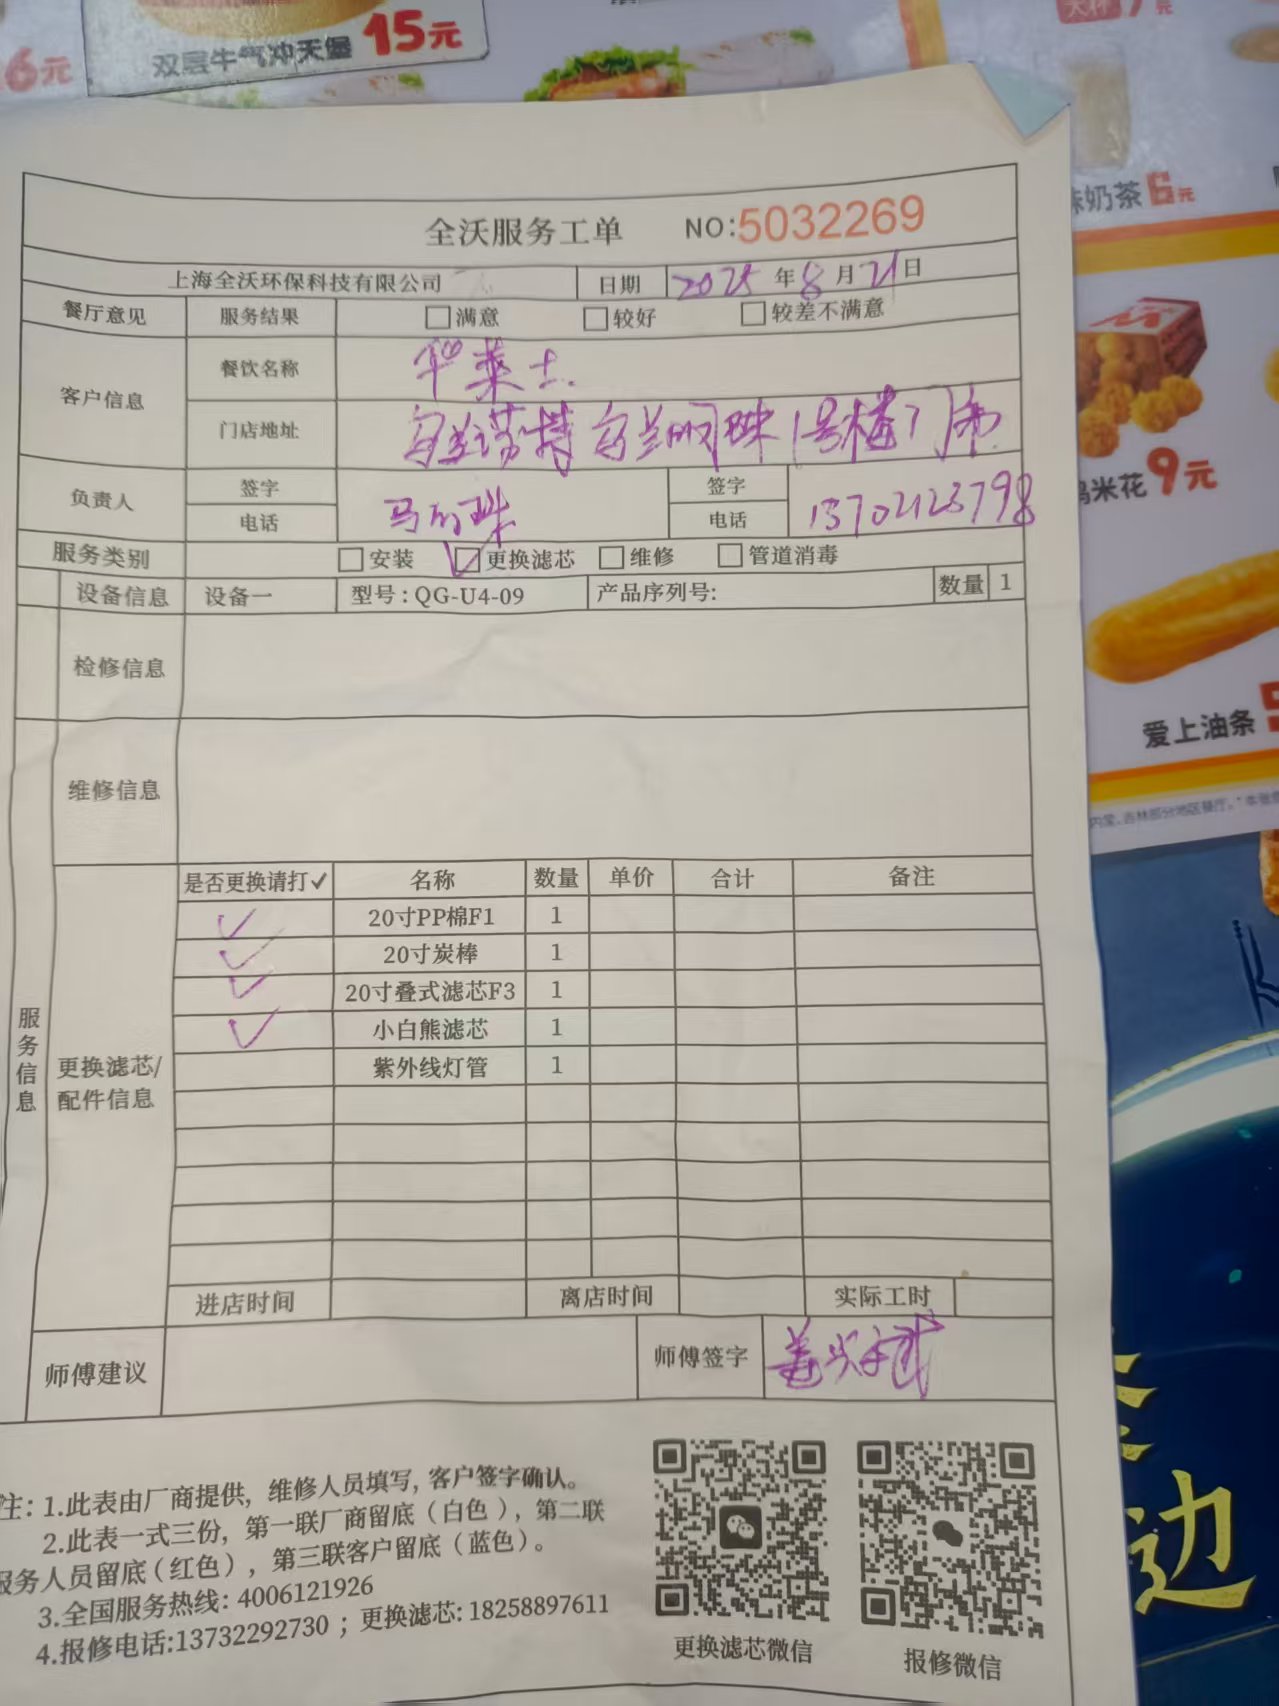 6元
双层牛气冲天堡 15元
奶茶 6元
米花 9元
爱上油条
边
全沃服务工单 NO:5032269
上海全沃环保科技有限公司 日期 2025年8月21日
餐厅意见 服务结果 满意 较好 较差不满意
客户信息 餐饮名称 华莱士.
门店地址 乌兰诺特乌兰明珠1号楼门市
负责人 签字 签字
电话 马明珠 电话 13702123798
服务类别 安装 ✓更换滤芯 维修 管道消毒
设备信息 设备一 型号:QG-U4-09 产品序列号: 数量 1
检修信息
维修信息
服务信息
更换滤芯/配件信息
是否更换请打✓ 名称 数量 单价 合计 备注
✓ 20寸PP棉F1 1
✓ 20寸炭棒 1
✓ 20寸叠式滤芯F3 1
✓ 小白熊滤芯 1
紫外线灯管 1
进店时间 离店时间 实际工时
师傅建议 师傅签字
注: 1.此表由厂商提供, 维修人员填写, 客户签字确认。
2.此表一式三份, 第一联厂商留底(白色), 第二联
服务人员留底(红色), 第三联客户留底(蓝色)。
3.全国服务热线: 4006121926
4.报修电话:13732292730 ; 更换滤芯: 18258897611
更换滤芯微信 报修微信